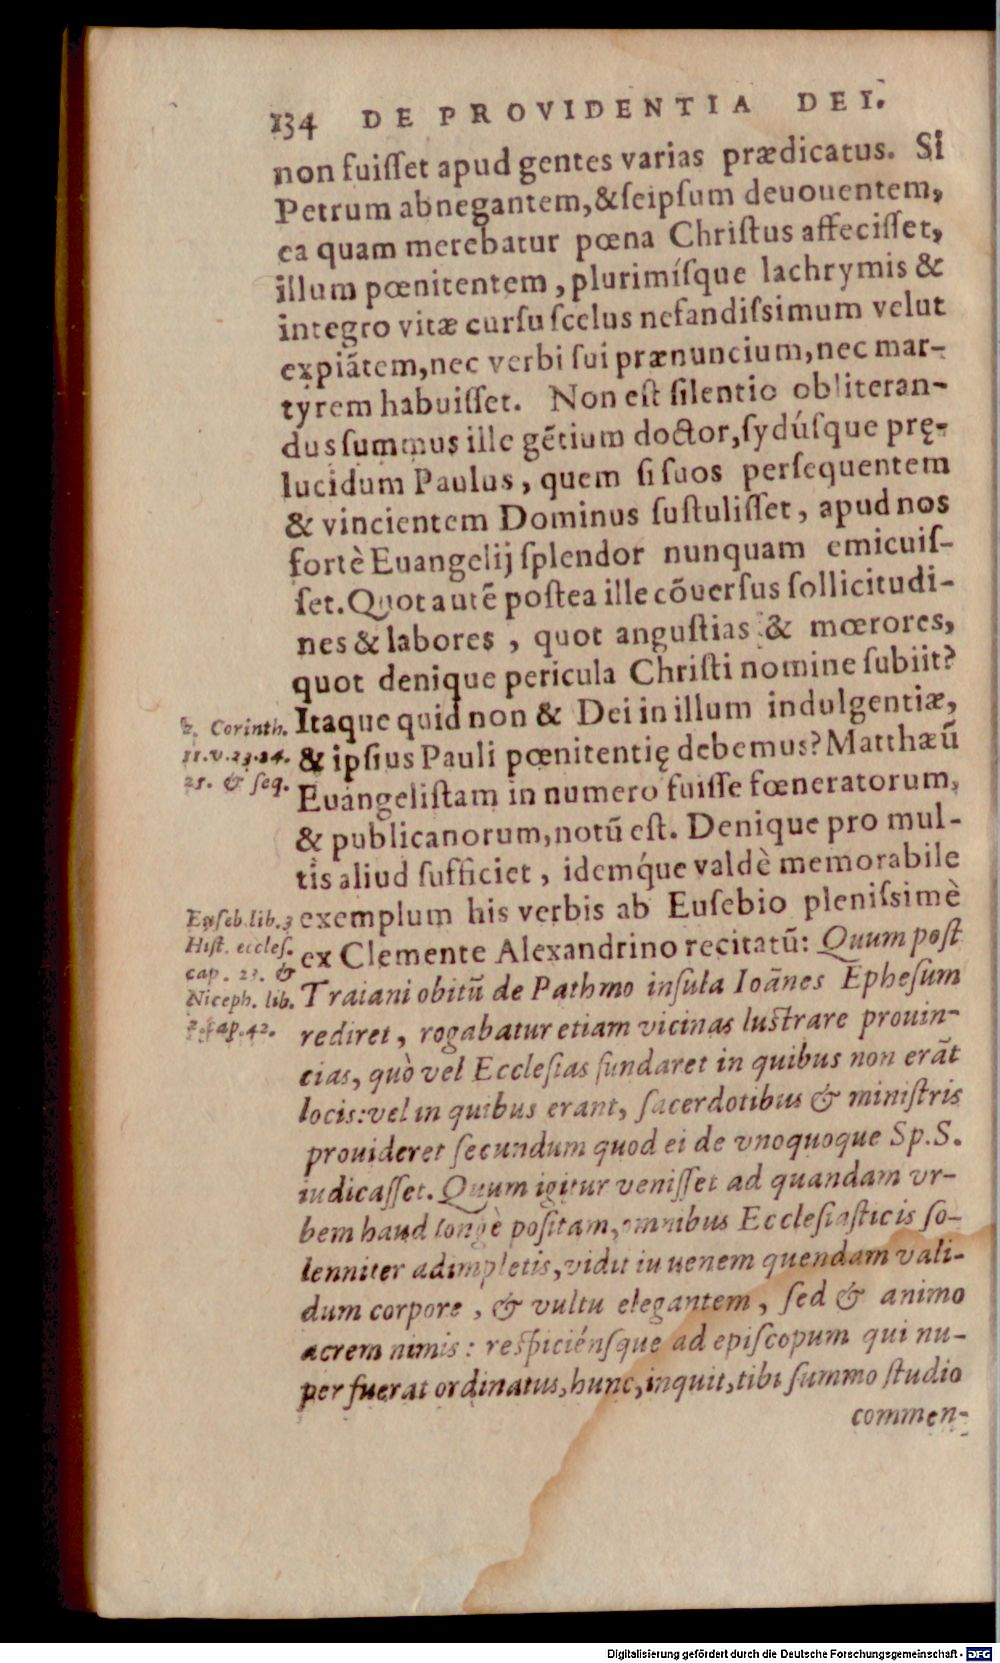 134 DE PROVIDENTIA DEI.
non fuiſſet apud gentes varias prædicatus. Si
Petrum abnegantem, & ſeipſum deuouentem,
ea quam merebatur pœna Chriſtus affeciſſet,
illum pœnitentem, plurimíſque lachrymis &
integro vitæ curſu ſcelus nefandiſsimum velut
expiãtem, nec verbi ſui prænuncium, nec mar-
tyrem habuiſſet. Non eſt ſilentio obliteran-
dus ſummus ille gẽtium doctor, ſydúſque prę-
lucidum Paulus, quem ſi ſuos perſequentem
& vincientem Dominus ſuſtuliſſet, apud nos
fortè Euangelij ſplendor nunquam emicuiſ-
ſet. Quot autẽ poſtea ille cõuerſus ſollicitudi-
nes & labores, quot anguſtias & mœrores,
quot denique pericula Chriſti nomine ſubiit?
Itaque quid non & Dei in illum indulgentiæ,
& ipſius Pauli pœnitentię debemus? Matthæũ
Euangeliſtam in numero fuiſſe fœneratorum,
& publicanorum, notũ eſt. Denique pro mul-
tis aliud ſufficiet, idemq́ue valdè memorabile
exemplum his verbis ab Euſebio pleniſsimè
ex Clemente Alexandrino recitatũ: Quum poſt
Traiani obitũ de Pathmo inſula Ioãnes Epheſum
rediret, rogabatur etiam vicinas luſtrare prouin-
cias, quò vel Eccleſias fundaret in quibus non erãt
locis: vel in quibus erant, ſacerdotibus & miniſtris
prouideret ſecundum quod ei de vnoquoque Sp. S.
iudicaſſet. Quum igitur veniſſet ad quandam vr-
bem haud longè poſitam, omnibus Eccleſiaſticis ſo-
lenniter adimpletis, vidit iuuenem quendam vali-
dum corpore, & vultu elegantem, ſed & animo
acrem nimis: reſpiciénſque ad epiſcopum qui nu-
per fuerat ordinatus, hunc, inquit, tibi ſummo ſtudio
commen-
2. Corinth.
11. v. 23. 24.
25. & ſeq.
Euſeb. lib. 3
Hiſt. eccleſ.
cap. 23. &
Niceph. lib.
2. cap. 42.
Digitalisierung gefördert durch die Deutsche Forschungsgemeinschaft - DFG